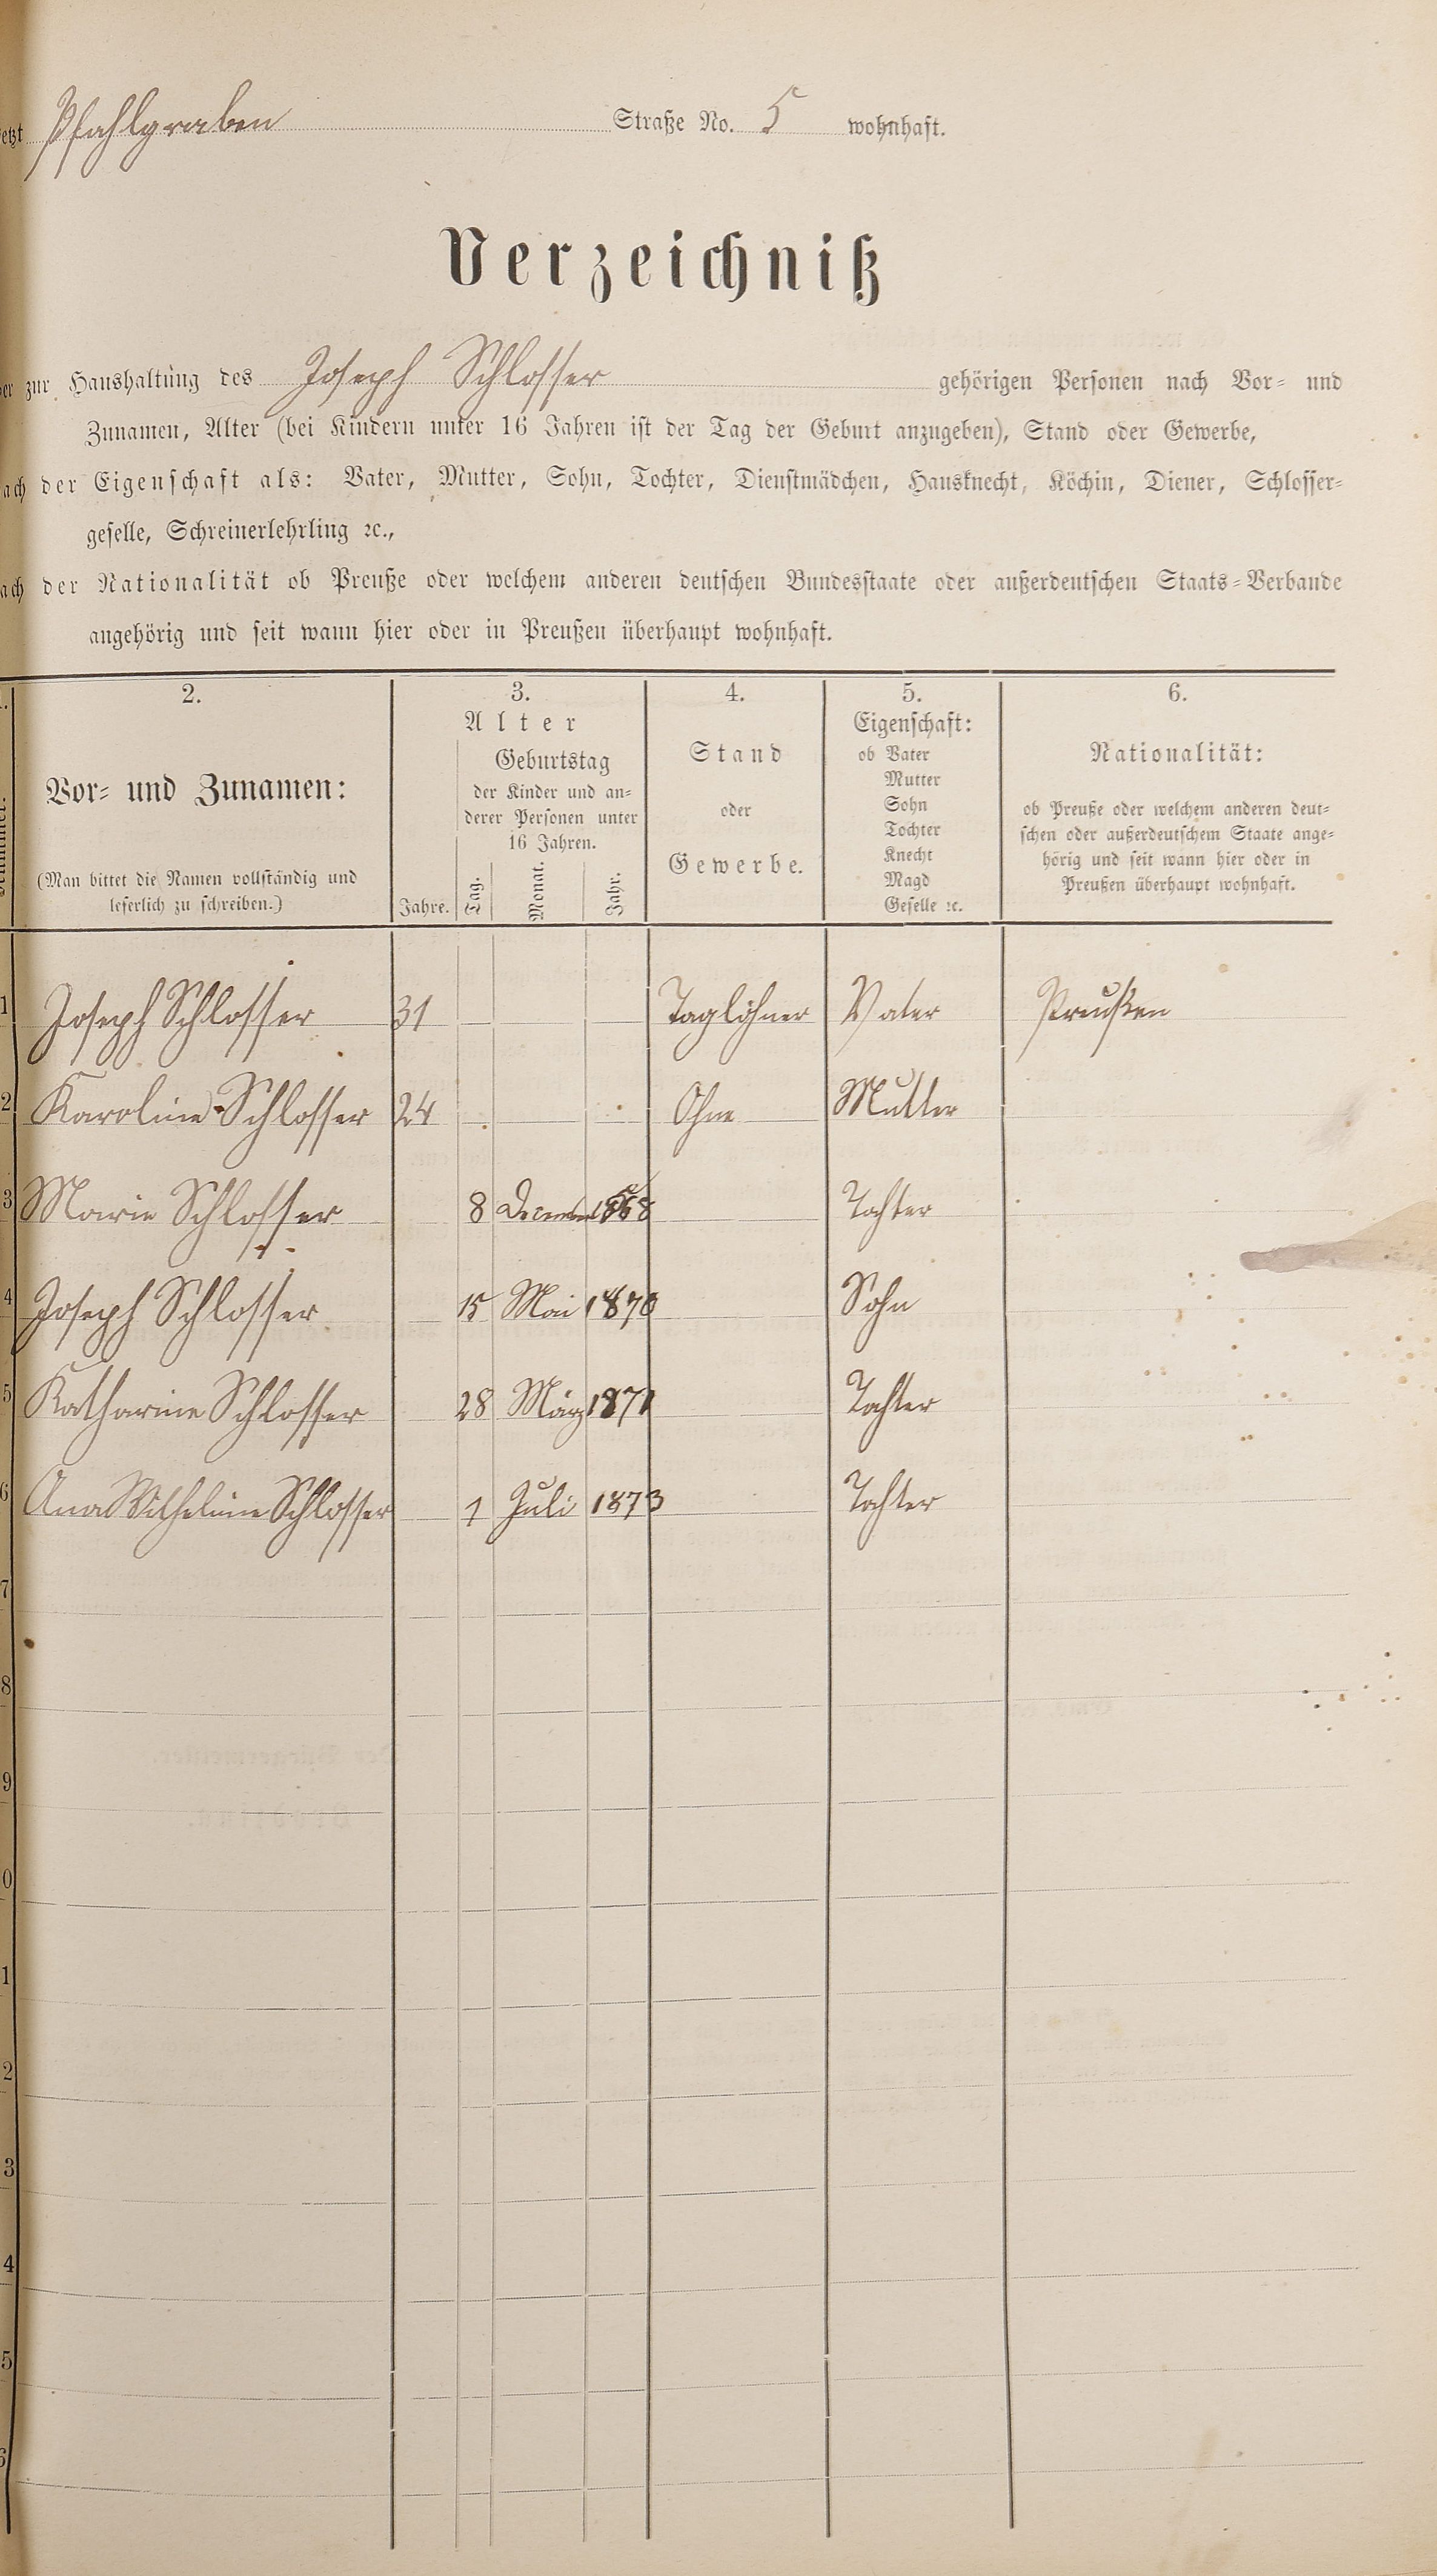 Pfahlgraben Straße No. 5 wohnhaft.
Verzeichniß
zur Haushaltung des Joseph Schlosser gehörigen Personen nach Vor- und
Zunamen, Alter (bei Kindern unter 16 Jahren ist der Tag der Geburt anzugeben), Stand oder Gewerbe,
der Eigenschaft als: Vater, Mutter, Sohn, Tochter, Dienstmädchen, Hausknecht, Köchin, Diener, Schlosser-
geselle, Schreinerlehrling ꝛc.,
der Nationalität ob Preuße oder welchem anderen deutschen Bundesstaate oder außerdeutschen Staats-Verbande
angehörig und seit wann hier oder in Preußen überhaupt wohnhaft.
2.
Vor- und Zunamen:
(Man bittet die Namen vollständig und
leserlich zu schreiben.)
3.
Alter
Jahre.
Geburtstag
der Kinder und an-
derer Personen unter
16 Jahren.
Tag. Monat. Jahr.
4.
Stand
oder
Gewerbe.
5.
Eigenschaft:
ob Vater
Mutter
Sohn
Tochter
Knecht
Magd
Geselle ꝛc.
6.
Nationalität:
ob Preuße oder welchem anderen deut-
schen oder außerdeutschem Staate ange-
hörig und seit wann hier oder in
Preußen überhaupt wohnhaft.
1 Joseph Schlosser 31 Taglöhner Vater Preußen
2 Karoline Schlosser 24 Ohne Mutter
3 Marie Schlosser 8 December 1868 Tochter
4 Joseph Schlosser 15 Mai 1870 Sohn
5 Katharine Schlosser 28 März 1871 Tochter
6 Ana Wilhelmine Schlosser 1 Juli 1873 Tochter
7
8
9
0
1
2
3
4
5
6